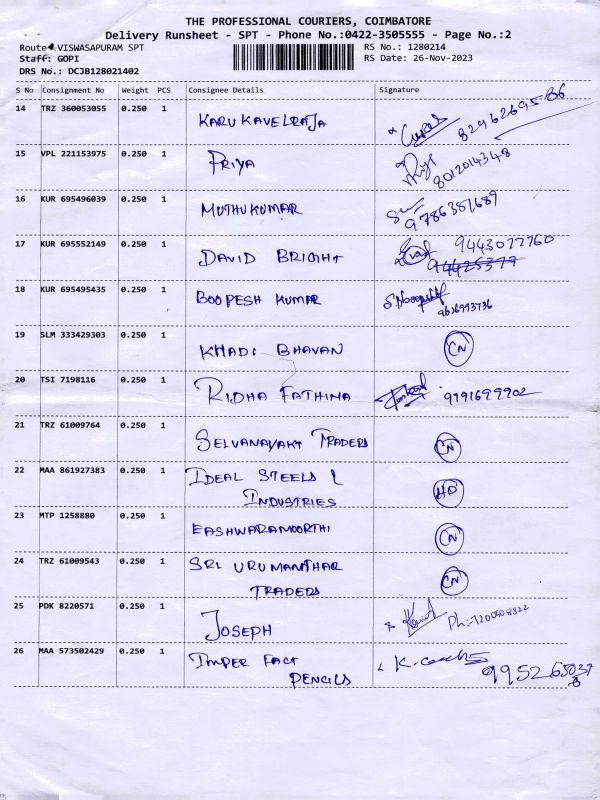 THE PROFESSIONAL COURIERS, COIMBATORE
Delivery Runsheet - SPT - Phone No.:0422-3505555 - Page No.:2
Route: VISWASAPURAM SPT RS No.: 1280214
Staff: GOPI RS Date: 26-Nov-2023
DRS No.: DCJB128021402
S No Consignment No Weight PCS Consignee Details Signature
14 TRZ 360053055 0.250 1 KARU KAVELRAJA 8296269586
15 VPL 221153975 0.250 1 PRIYA Priya 8012014348
16 KUR 695496039 0.250 1 MUTHUKUMAR 9786351689
17 KUR 695552149 0.250 1 DAVID BRIGHT 9443077760
18 KUR 695495435 0.250 1 BOOPESH KUMAR 9626993736
19 SLM 333429303 0.250 1 KHADI BHAVAN CN
20 TSI 7198116 0.250 1 RIDHA FATHIMA 9791699902
21 TRZ 61009764 0.250 1 SELVANAYAKI TRADERS CN
22 MAA 861927383 0.250 1 IDEAL STEELS &
INDUSTRIES HD
23 MTP 1258880 0.250 1 EASHWARAMOORTHI CN
24 TRZ 61009543 0.250 1 SRI URUMANTHAR
TRADERS CN
25 PDK 8220571 0.250 1 JOSEPH Ph:-7200608822
26 MAA 573502429 0.250 1 IMPER FACT
PENCILS 995265037